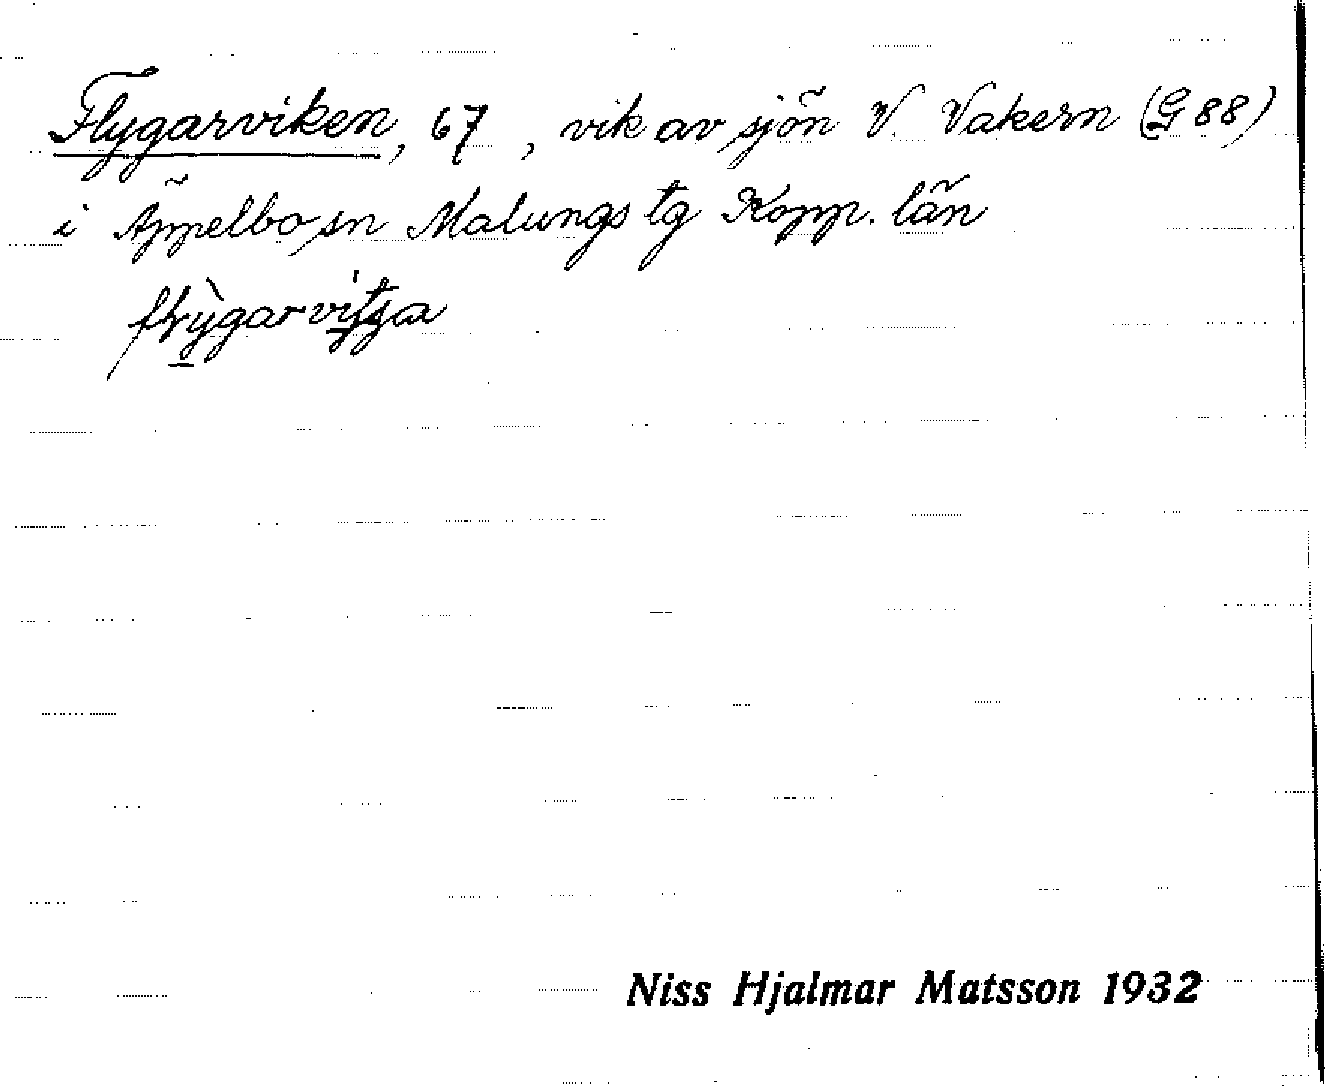 Flygarviken, 67, vik av sjön V. Vakern (G 88)
i Äppelbo sn Malungs tg Kopp. län
Niss Hjalmar Matsson 1932